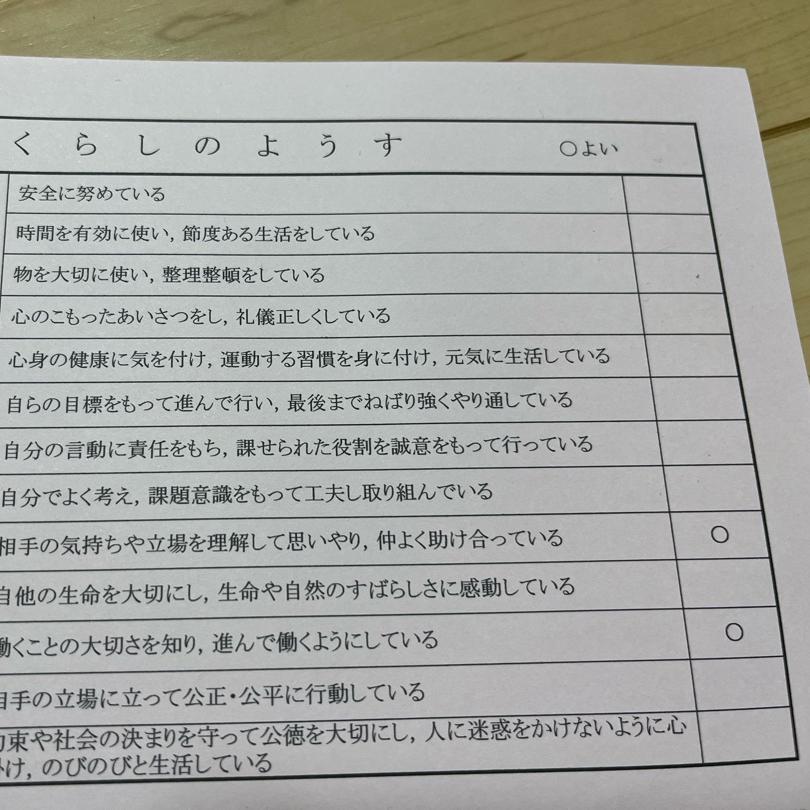 くらしのようす ○よい
安全に努めている
時間を有効に使い，節度ある生活をしている
物を大切に使い，整理整頓をしている
心のこもったあいさつをし，礼儀正しくしている
心身の健康に気を付け，運動する習慣を身に付け，元気に生活している
自らの目標をもって進んで行い，最後までねばり強くやり通している
自分の言動に責任をもち，課せられた役割を誠意をもって行っている
自分でよく考え，課題意識をもって工夫し取り組んでいる
相手の気持ちや立場を理解して思いやり，仲よく助け合っている ○
自他の生命を大切にし，生命や自然のすばらしさに感動している
働くことの大切さを知り，進んで働くようにしている ○
相手の立場に立って公正・公平に行動している
約束や社会の決まりを守って公徳を大切にし，人に迷惑をかけないように心
がけ，のびのびと生活している